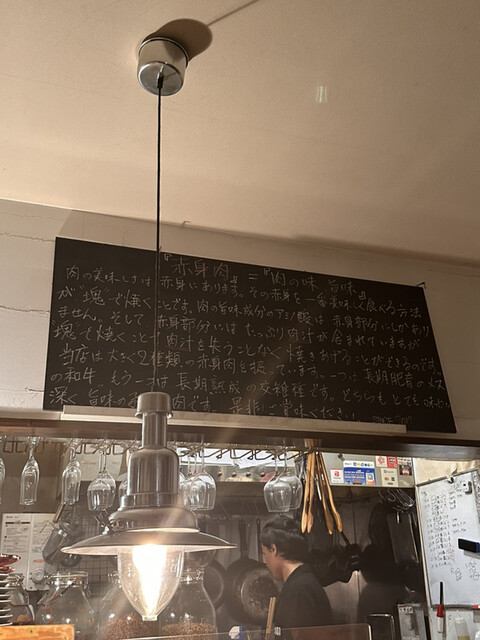 『赤身肉』=『肉の味、旨味』
肉の美味しさは『赤身にあります。その赤身を一番美味しく食べる方法
が“塊”で焼くことです。肉の旨味成分のアミノ酸は、赤身部分にしかあり
ません。そして赤身部分にはたっぷり肉汁が含まれていますが
“塊”で焼くと、肉汁を失うことなく焼きあげることができるのです。
当店は大きく2種類の赤身肉を扱っています。一つは長期肥育のメス
の和牛、もう一つは長期熟成の交雑種です。どちらもとても味わい
深く旨味のあるお肉です。是非ご賞味ください!